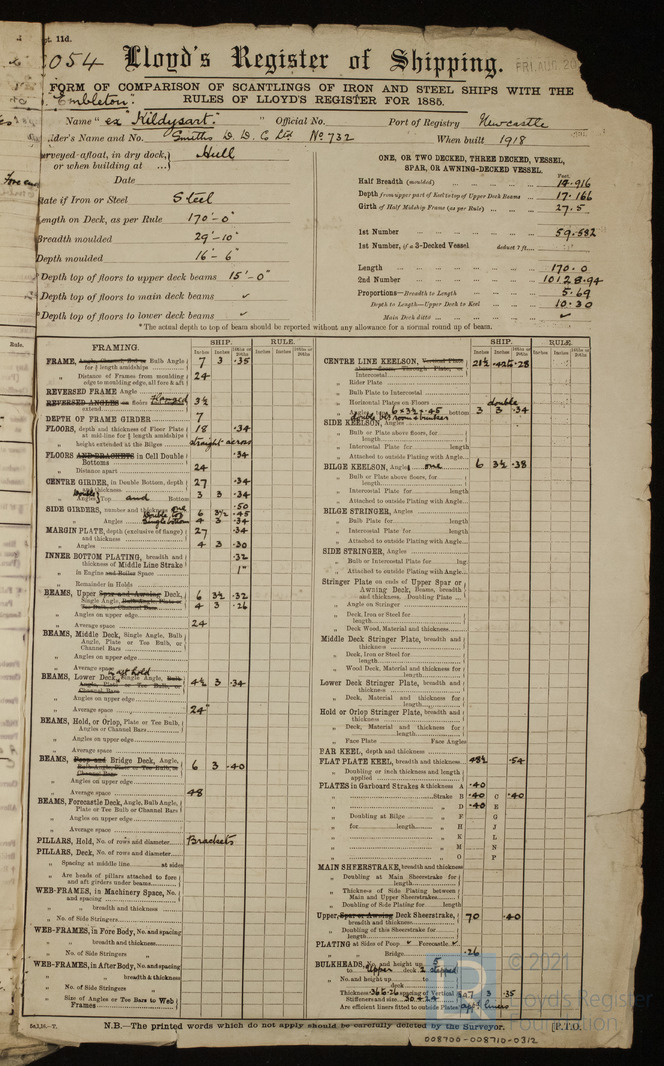 pt. 11d.
054 Lloyd's Register of Shipping. FRI. AUG. 20
FORM OF COMPARISON OF SCANTLINGS OF IRON AND STEEL SHIPS WITH THE
RULES OF LLOYD'S REGISTER FOR 1885.
"Embleton"
Name "ex Kildysart." " Official No. Port of Registry Newcastle
lder's Name and No. Smiths D. D. C Ltd No 732 When built 1918
urveyed-afloat, in dry dock, or when building at ... Hull
Date
tate if Iron or Steel Steel
ength on Deck, as per Rule 170'-0"
Breadth moulded 29'-10"
Depth moulded 16'-6"
*Depth top of floors to upper deck beams 15'-0"
*Depth top of floors to main deck beams ✓
*Depth top of floors to lower deck beams ✓
ONE, OR TWO DECKED, THREE DECKED, VESSEL,
SPAR, OR AWNING-DECKED VESSEL.
Feet.
Half Breadth (moulded) 14.916
Depth from upper part of Keel to top of Upper Deck Beams 17.166
Girth of Half Midship Frame (as per Rule) 27.5
1st Number 59.582
1st Number, if a 3-Decked Vessel deduct 7 ft.
Length 170.0
2nd Number 10128.94
Proportions—Breadth to Length 5.69
Depth to Length—Upper Deck to Keel 10.30
Main Deck ditto ✓
*The actual depth to top of beam should be reported without any allowance for a normal round up of beam.
Rule.
FRAMING. SHIP. RULE.
Inches Inches Inches Inches
FRAME, Bulb Angle, for ¾ length amidships 7 3 .35
„ Distance of Frames from moulding edge to moulding edge, all fore & aft 24
REVERSED FRAME Angle
REVERSED ANGLES on floors extend Flanged 3½
DEPTH OF FRAME GIRDER 7
FLOORS, depth and thickness of Floor Plate at mid-line for ½ length amidships 18 .34
„ height extended at the Bilges straight across
FLOORS AND BRACKETS in Cell Double Bottoms .34
„ Distance apart 24
CENTRE GIRDER, in Double Bottom, depth and thickness 27 .34
„ Double Angles, Top and Bottom 3 3 .34
SIDE GIRDERS, number and thickness one .50
„ Angles Double top 6 3½ .45
Single bottom 4 3 .34
MARGIN PLATE, depth (exclusive of flange) and thickness 27 .34
„ Angles 4 3 .30
INNER BOTTOM PLATING, breadth and thickness of Middle Line Strake .32
„ in Engine and Boiler Space 1"
„ Remainder in Holds
BEAMS, Upper Spar and Awning Deck, Single Angle, Bulb Angle, Plate or Tee Bulb, or Channel Bars 6 3½ .32
4 3 .26
„ Angles on upper edge
„ Average space 24
BEAMS, Middle Deck, Single Angle, Bulb Angle, Plate or Tee Bulb, or Channel Bars
„ Angles on upper edge
„ Average space
BEAMS, Lower Deck, Single Angle, Bulb Angle, Plate or Tee Bulb, or Channel Bars 4½ 3 .34
„ Angles on upper edge
„ Average space 24"
BEAMS, Hold, or Orlop, Plate or Tee Bulb, Angles or Channel Bars
„ Angles on upper edge
„ Average space
BEAMS, Poop and Bridge Deck, Angle, Bulb Angle, Plate or Tee Bulb, or Channel Bars 6 3 .40
„ Angles on upper edge
„ Average space 48
BEAMS, Forecastle Deck, Angle, Bulb Angle, Plate or Tee Bulb or Channel Bars
„ Angles on upper edge
„ Average space
PILLARS, Hold, No. of rows and diameter Brackets
PILLARS, Deck, No. of rows and diameter
„ Spacing at middle line at sides
„ Are heads of pillars attached to fore and aft girders under beams
WEB-FRAMES, in Machinery Space, No. and spacing
„ „ breadth and thickness
„ No. of Side Stringers
WEB-FRAMES, in Fore Body, No. and spacing
„ „ breadth and thickness
„ No. of Side Stringers
WEB-FRAMES, in After Body, No. and spacing
„ „ breadth & thickness
„ No. of Side Stringers
„ Size of Angles or Tee Bars to Web Frames
SHIP. RULE.
Inches Inches Inches Inches
CENTRE LINE KEELSON, 21½ .42 to .28
„ Intercostal
„ Rider Plate
„ Bulb Plate to Intercostal
„ Horizontal Plates on Floors
„ Angles 6 x 3½ x .45 bottom double 3 3 .34
SIDE KEELSON, Angles
„ Bulb or Plate above floors, for length
„ Intercostal Plate for length
„ Attached to outside Plating with Angle
BILGE KEELSON, Angles one 6 3½ .38
„ Bulb or Plate above floors, for length
„ Intercostal Plate for length
„ Attached to outside Plating with Angle
BILGE STRINGER, Angles
„ Bulb Plate for length
„ Intercostal Plate for length
„ Attached to outside Plating with Angle
SIDE STRINGER, Angles
„ Bulb or Intercostal Plate for lng.
„ Attached to outside Plating with Angle
Stringer Plate on ends of Upper Spar or Awning Deck, Beams, breadth and thickness, Doubling Plate
„ Angle on Stringer
„ Deck, Iron or Steel for length
„ Deck Wood, Material and thickness
Middle Deck Stringer Plate, breadth and thickness
„ Deck, Iron or Steel for length
„ Wood Deck, Material and thickness for length
Lower Deck Stringer Plate, breadth and thickness
„ Deck, Material and thickness for length
Hold or Orlop Stringer Plate, breadth and thickness
„ Deck, Material and thickness for length
„ Face Plate Face Angles
BAR KEEL, depth and thickness
FLAT PLATE KEEL, breadth and thickness 48½ .54
„ Doubling or inch thickness and length applied
PLATES in Garboard Strakes & thickness A .40
„ Strake B .40 C .40
„ D .40 E
„ Doubling at Bilge F G
„ for length H J
„ K L
„ M N
„ O P
MAIN SHEERSTRAKE, breadth and thickness
„ Doubling at Main Sheerstrake for length
„ Thickness of Side Plating between Main and Upper Sheerstrakes
„ Doubling of Side Plating for length
Upper, Spar or Awning Deck Sheerstrake, breadth and thickness 70 .40
„ Doubling of this Sheerstrake for length
PLATING at Sides of Poop ✓ Forecastle ✓
„ Bridge .26
BULKHEADS, No. and height up 5
to Upper deck 2 stepped
„ No. and height up to deck
„ Thickness .36 to .26 spacing of Vertical Stiffeners and size 30 & 24 7 3 .35
„ Are efficient liners fitted to outside Plates liners
5d,1,16.—T. N.B.—The printed words which do not apply should be carefully deleted by the Surveyor. [P.T.O.
© 2021
Lloyd's Register
Foundation
008700-008710-0312